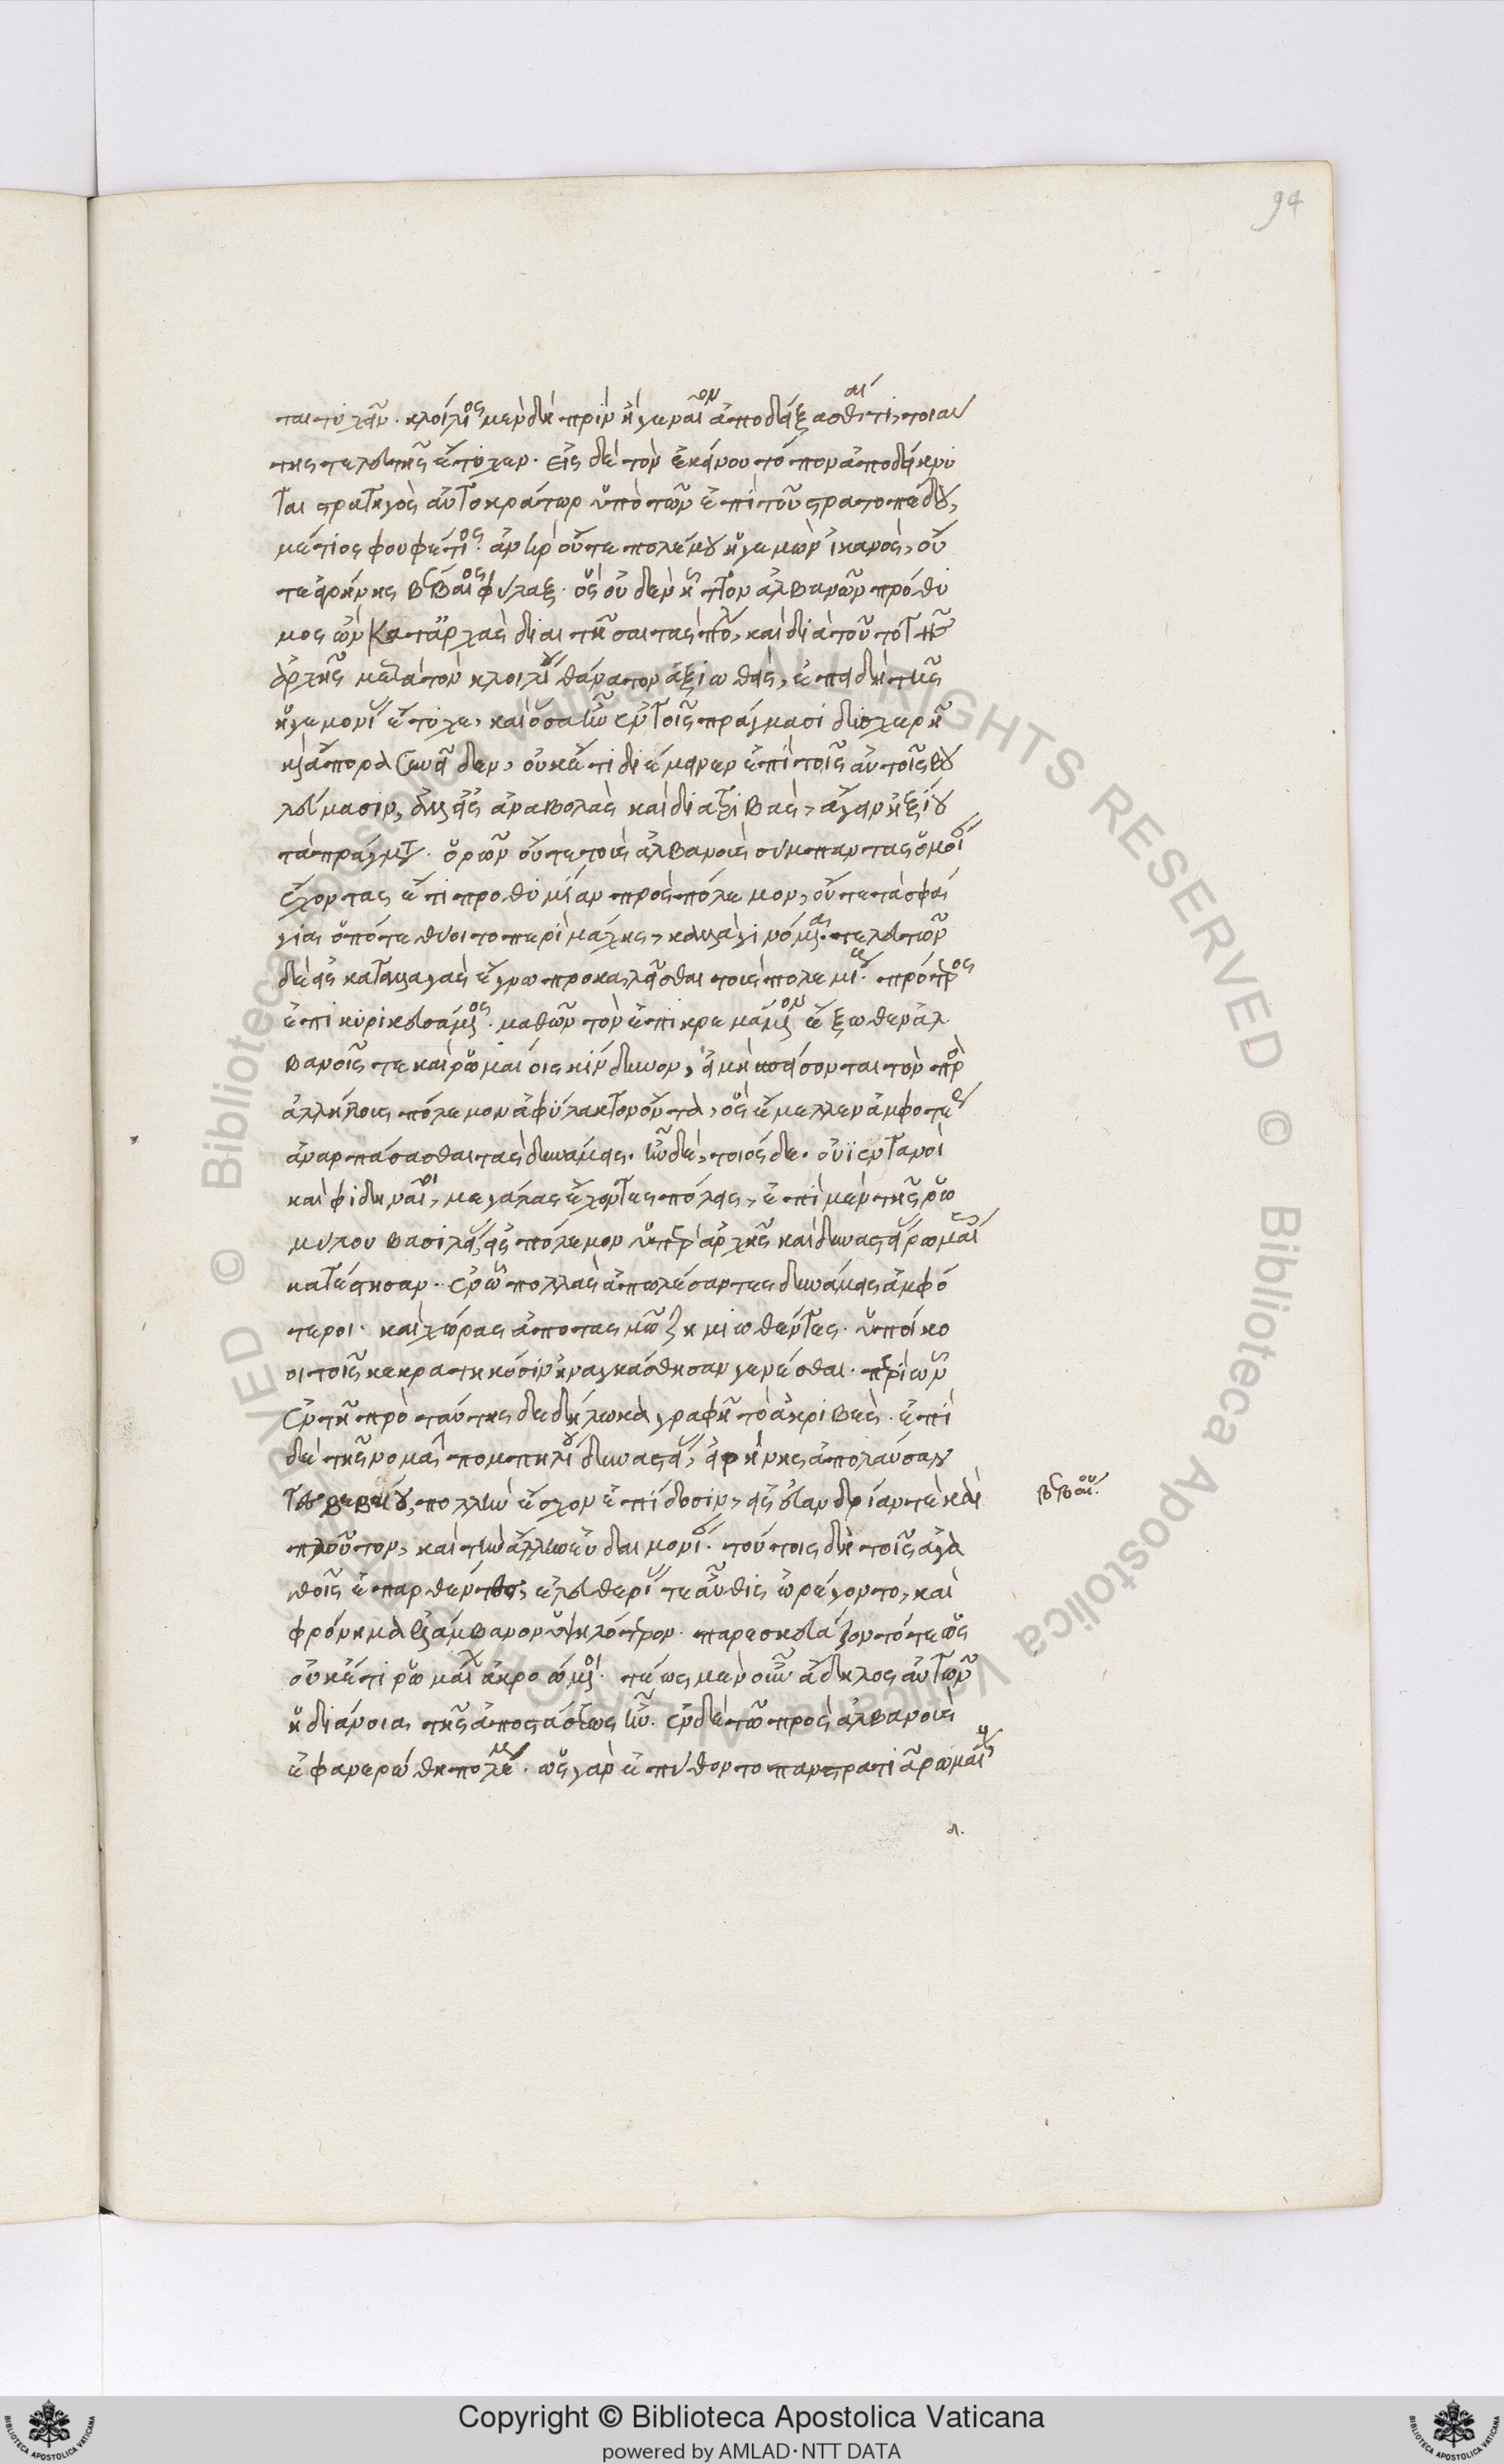 ται τυχεῖν. κλοίλιος μὲν δὴ πρὶν ἢ γεναῖον ἀποδείξασθαί τι, τοιαύ
της τελευτῆς ἔτυχεν. εἰς δὲ τὸν ἐκείνου τόπον ἀποδείκνυ
ται στρατηγὸς αὐτοκράτωρ ὑπὸ τῶν ἐπὶ τοῦ στρατοπέδου,
μέτιος φουφέτιος. ἀνὴρ οὔτε πολέμου ἡγεμὼν ἱκανὸς, οὔ
τε εἰρήνης βέβαιος φύλαξ. ὃς οὐδὲν ἧττον ἀλβανῶν πρόθυ
μος ὢν κατ' ἀρχὰς διαστῆσαι τὰς πόλεις, καὶ διὰ τοῦτο τῆς
ἀρχῆς μετὰ τὸν κλοιλίου θάνατον ἀξιωθεὶς, ἐπειδὴ τῆς
ἡγεμονίας ἔτυχε, καὶ ὅσα ἦν ἐν τοῖς πράγμασι δυσχερῆ
καὶ ἄπορα συνεῖδεν, οὐκέτι διέμενεν ἐπὶ τοῖς αὐτοῖς βου
λεύμασιν, ἀλλ' εἰς ἀναβολὰς καὶ διατριβὰς, ἄγειν ἠξίου
τὰ πράγματα. ὁρῶν οὔτε τοὺς ἀλβανοὺς σύμπαντας ὁμοίαν
ἔχοντας ἔτι προθυμίαν πρὸς πόλεμον, οὔτε τὰ σφά
για ὁπότε θύοιτο περὶ μάχης, καλὰ γινόμενα. τελευτῶν
δὲ εἰς καταλλαγὰς ἔγνω προκαλεῖσθαι τοὺς πολεμίους. πρότερος
ἐπικηρυκευσάμενος. μαθὼν τὸν ἐπικρεμάμενον ἔξωθεν ἀλ
βανοῖς τε καὶ ῥωμαίοις κίνδυνον, εἰ μὴ παύσονται τὸν πρὸς
ἀλλήλους πόλεμον ἀφύλακτον ὄντα, ὃς ἔμελλεν ἀμφοτέρας
ἀναρπάσασθαι τὰς δυνάμεις. ἦν δὲ, τοιόσδε. οὐϊεντανοὶ
καὶ φιδηναῖοι, μεγάλας ἔχοντες πόλεις, ἐπὶ μὲν τῆς ῥω
μύλου βασιλείας, εἰς πόλεμον ὑπὲρ ἀρχῆς καὶ δυναστείας ῥωμαίοις
κατέστησαν. ἐν ᾧ πολλὰς ἀπωλέσαντες δυνάμεις ἀμφό
τεροι. καὶ χώρας ἀποτασμῷ ζημιωθέντες. ὑπήκο
οι τοῖς κεκρατηκόσιν ἠναγκάσθησαν γενέσθαι. περὶ ὧν
ἐν τῇ πρὸ ταύτης δεδήλωκα γραφῇ τὸ ἀκριβὲς. ἐπὶ
δὲ τῆς νομᾶ πομπηλίου δυναστείας, εἰρήνης ἀπολαύσαν
τες βεβαίου, πολλὴν ἔσχον ἐπίδοσιν, εἰς εὐανδρίαν τε καὶ
βεβαίου.
πλοῦτον, καὶ τὴν ἄλλην εὐδαιμονίαν. τούτοις δὴ τοῖς ἀγα
θοῖς ἐπαρθέντες, ἐλευθερίας τε αὖθις ὠρέγοντο, καὶ
φρόνημα ἐλάμβανον ὑψηλότερον. παρεσκευάζοντό τε ὡς
οὐκέτι ῥωμαίων ἀκροώμενοι. τέως μὲν οὖν ἄδηλος αὐτῶν
ἡ διάνοια τῆς ἀποστάσεως ἦν. ἐν δὲ τῷ πρὸς ἀλβανοὺς
ἐφανερώθη πολέμῳ. ὡς γὰρ ἐπύθοντο πανστρατιᾷ ῥωμαίους
94